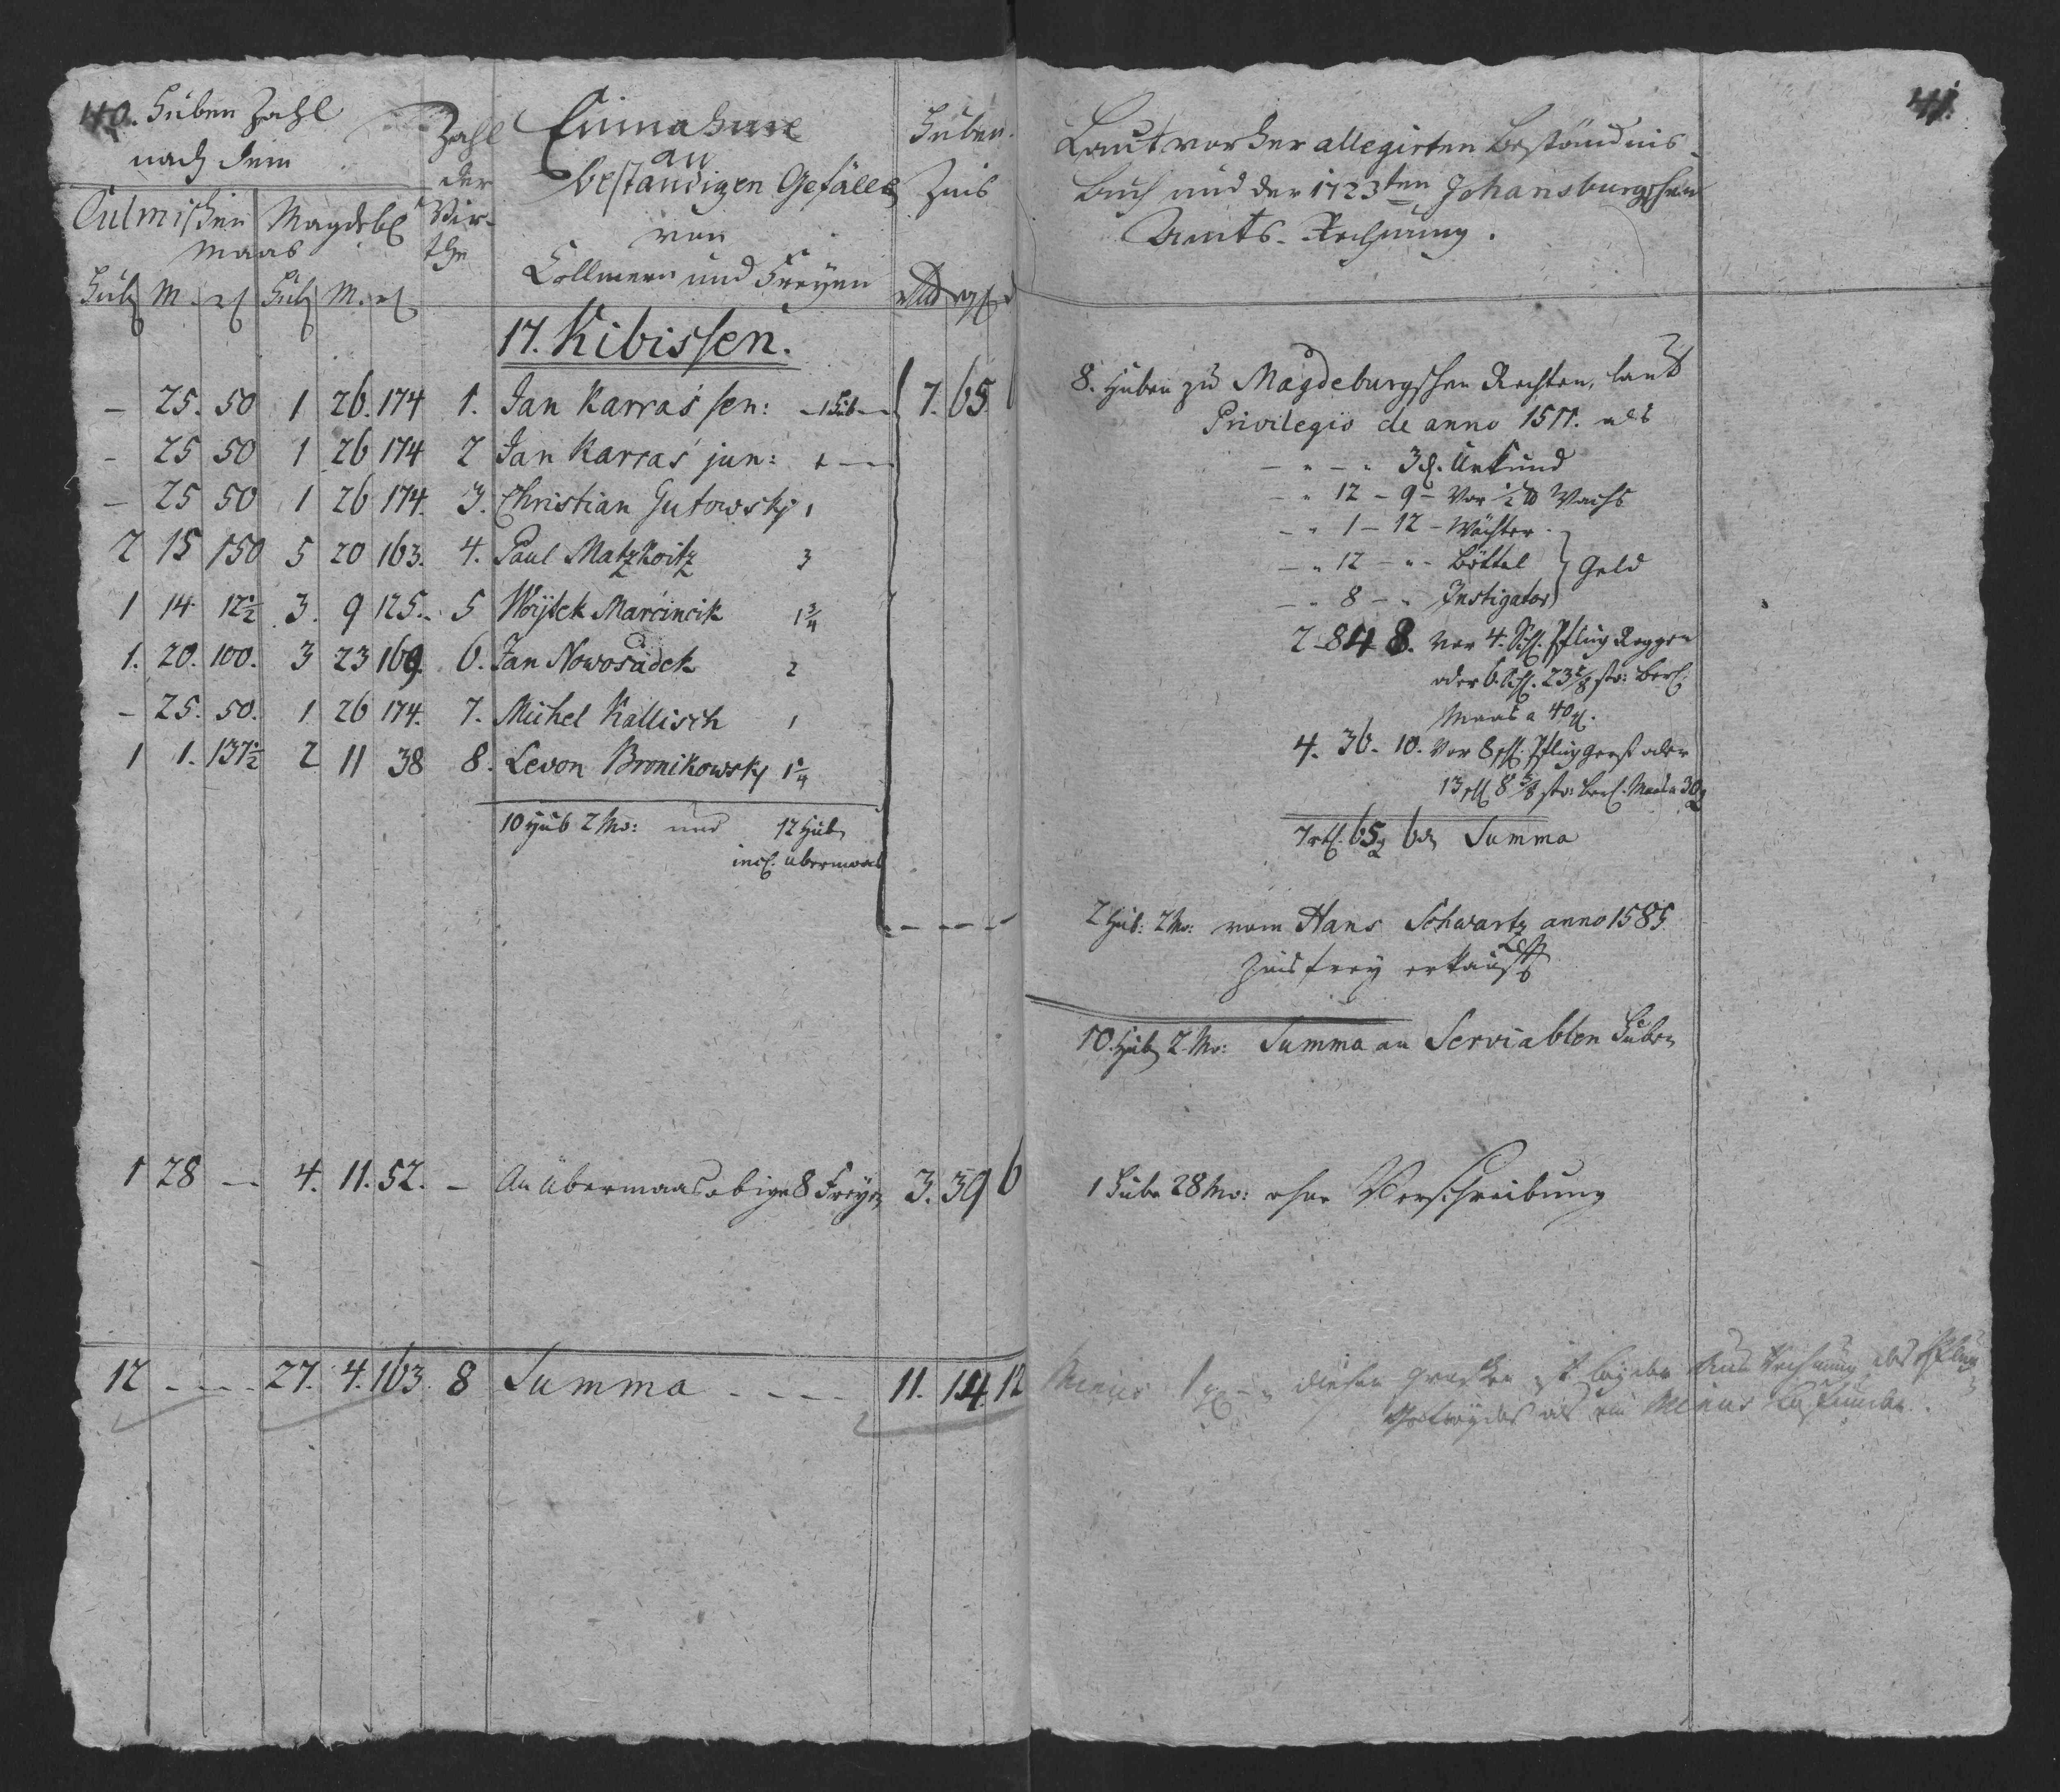 40. Huben Zahl
nach dem
Culmischen Magdebl
Maas
Hub M. Hub M.
Zahl
der
Wir-
the
Einnahme
an
beständigen Gefälle
von
Collmern und Freyen
Huben-
Zins
17. Kibissen.
- 25. 50 1 26. 174 1. Jan Karras sen: - 1 Hub - 7. 65. 6
- 25 50 1 26 174 2 Jan Karras jun: 1 -
- 25 50 1 26 174. 3. Christian Gutowsky 1
2 15 150 5 20 163. 4. Paul Matzkoitz 3
1 14 12½ 3. 9 125. 5 Woytek Marcincik 1¾
1. 20. 100. 3 23 169. 6. Jan Nowosadek 2
- 25. 50. 1 26 174. 7. Michel Kallisch 1
1 1. 137½ 2 11 38 8. Levon Bronikowsky 1¼
10 Hub 2 Mo: und 12 Hub
incl. übermaas
1 28 - 4. 11. 52. - An übermaas obiger 8 Freyen 3. 39 6
12 - - 27. 4. 163. 8 Summa - - - - 11. 14. 12
41.
Laut vorher allegirten Beständnis-
Buch und der 1723ten Johansburgschen
Amts-Rechnung.
8. Huben zu Magdeburgschen Rechten, laut
Privilegio de anno 1577. als
- " - " 3 . Urkund
- " 12 - 9 - Vor ½ ℔ Wachs
- " 1 - 12 - Wächter
- " 12 - " - Büttel } Geld
- " 8 - " Instigator
2 - 84 8. vor 4. Schl. Pflug Roggen
oder 6. Schl. 23 str: Berl.
Maas a 40 .
4. 36. 10. Vor 8 schl. Pflug Gerst oder
13 schl 8 str: Berl. Maas a 30
7 rtl. 65 g 6 d Summa
2 Hub: 2 Mo: vom Hans Schwartz anno 1585
Zins frey erkaufft
10. Hub 2 Mo: Summa an Serviablen Huben
1 Hube 28 Mo: ohne Verschreibung
Minus 1 g - " diesen Groschen ist
als ein Minus